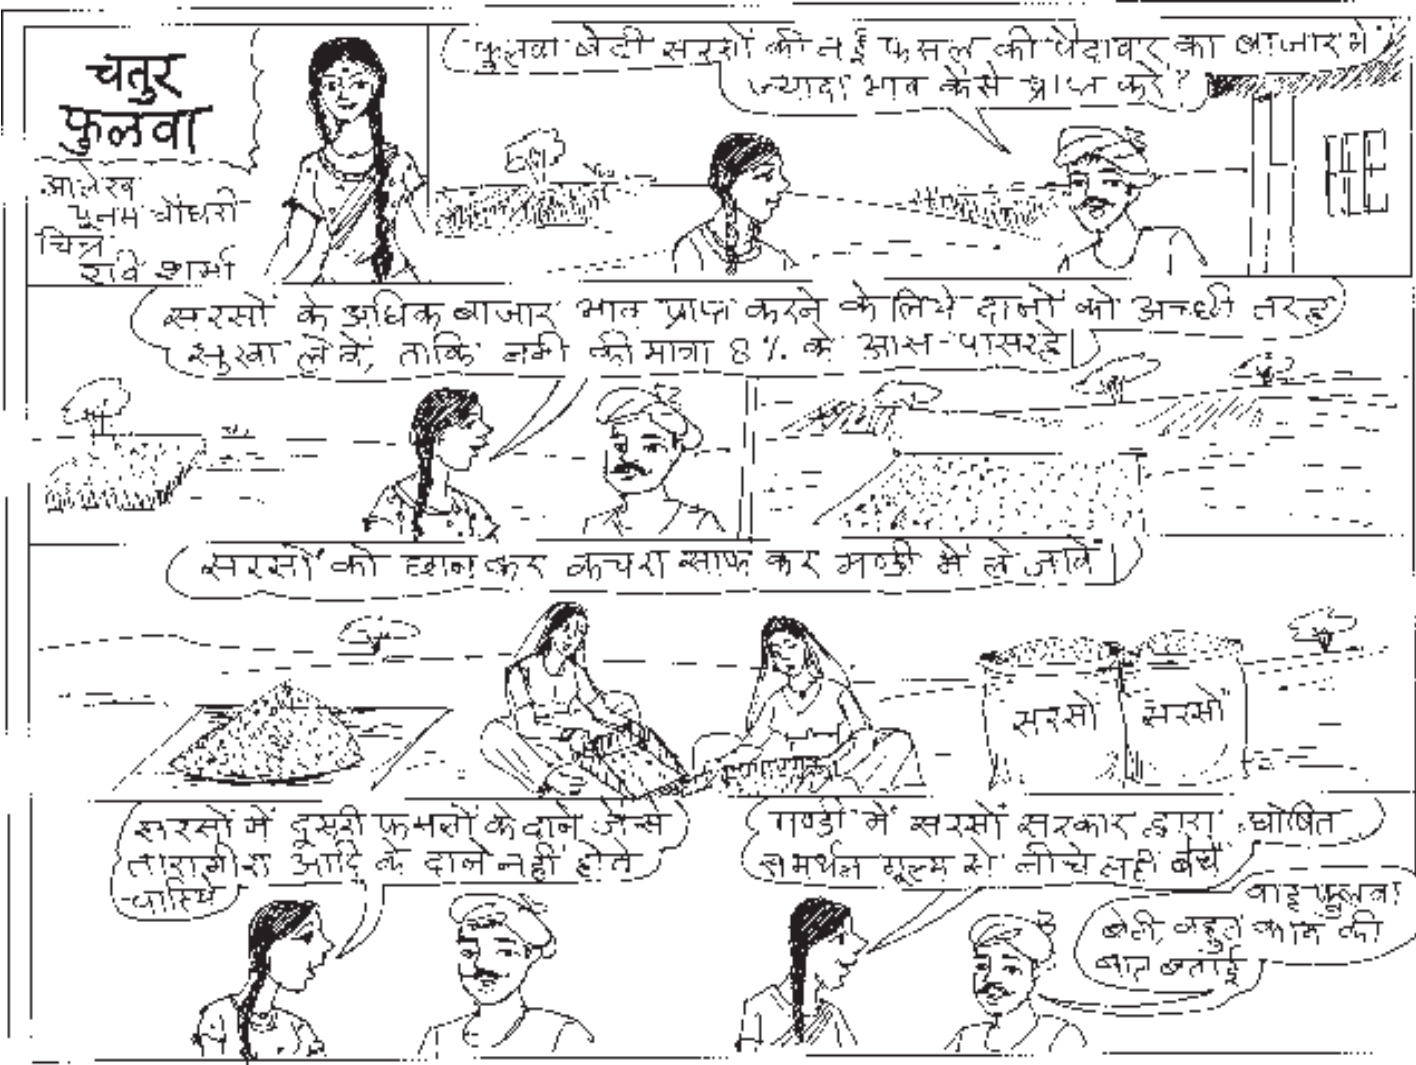 चतुर
फुलवा
आलेख
पूनम चौधरी
चित्र
रवि शर्मा
फुलवा बेटी सरसों की नई फसल की पैदावार का बाजार में
ज्यादा भाव कैसे प्राप्त करें?
सरसों के अधिक बाजार भाव प्राप्त करने के लिये दानों को अच्छी तरह
सुखा लेवें, ताकि नमी की मात्रा 8% के आस-पास रहे
सरसों को छान कर कचरा साफ कर मण्डी में ले जावें
सरसों
सरसों
सरसों में दूसरी फसलों के दाने जैसे
तारामीरा आदि के दाने नहीं होने
चाहिये
मण्डी में सरसों सरकार द्वारा घोषित
समर्थन मूल्य से नीचे नहीं बेचें
वाह फुलवा
बेटी, बहुत काम की
बात बताई